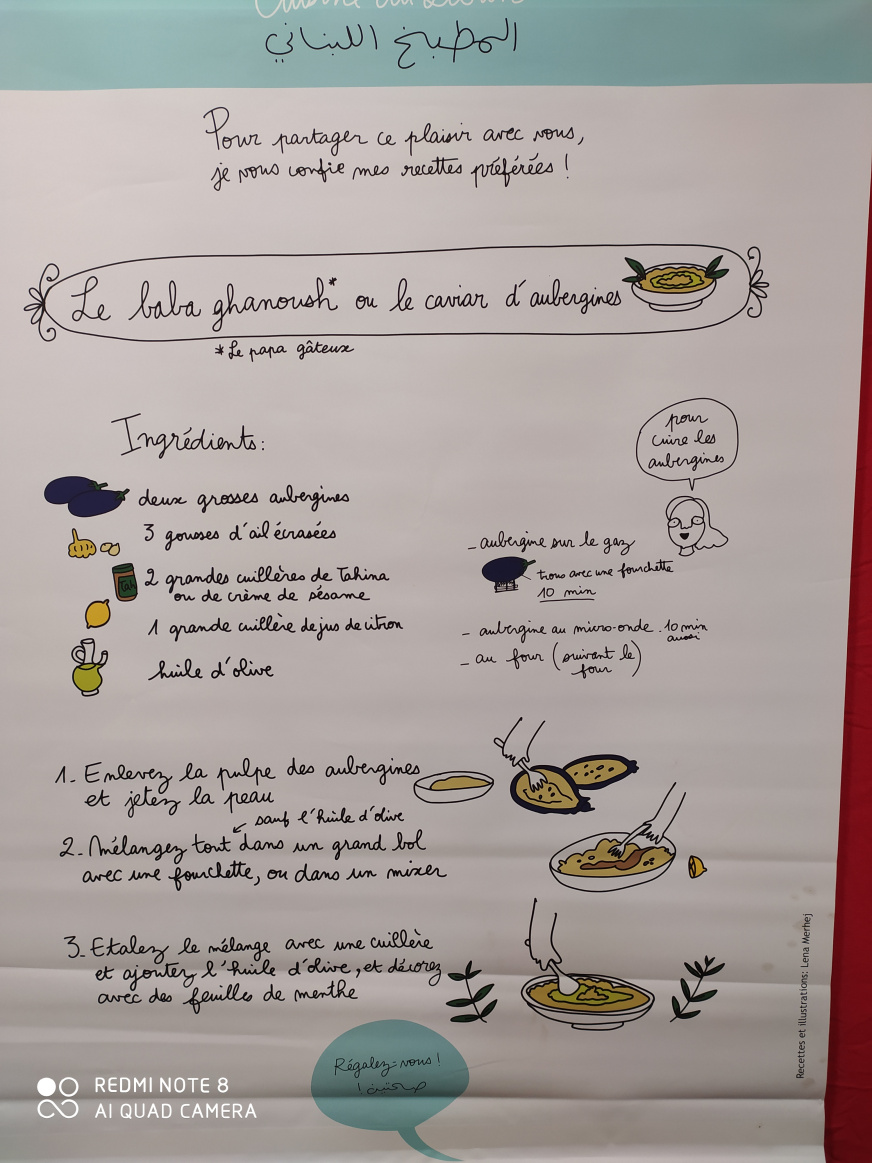 Cuisine du Liban
المطبخ اللبناني
Pour partager ce plaisir avec vous,
je vous confie mes recettes préférées !
Le baba ghanoush* ou le caviar d'aubergines
*Le papa gâteux
Ingrédients :
deux grosses aubergines
3 gousses d'ail écrasées
Tah
2 grandes cuillères de Tahina
ou de crème de sésame
1 grande cuillère de jus de citron
huile d'olive
pour
cuire les
aubergines
- aubergine sur le gaz
trous avec une fourchette
10 min
- aubergine au micro-onde. 10 min
aussi
- au four (suivant le
four)
1- Enlevez la pulpe des aubergines
et jetez la peau
sauf l'huile d'olive
2- Mélangez tout dans un grand bol
avec une fourchette, ou dans un mixer
3- Etalez le mélange avec une cuillère
et ajoutez l'huile d'olive, et décorez
avec des feuilles de menthe
Régalez-vous !
صحتين !
Recettes et illustrations: Lena Merhej
REDMI NOTE 8
AI QUAD CAMERA